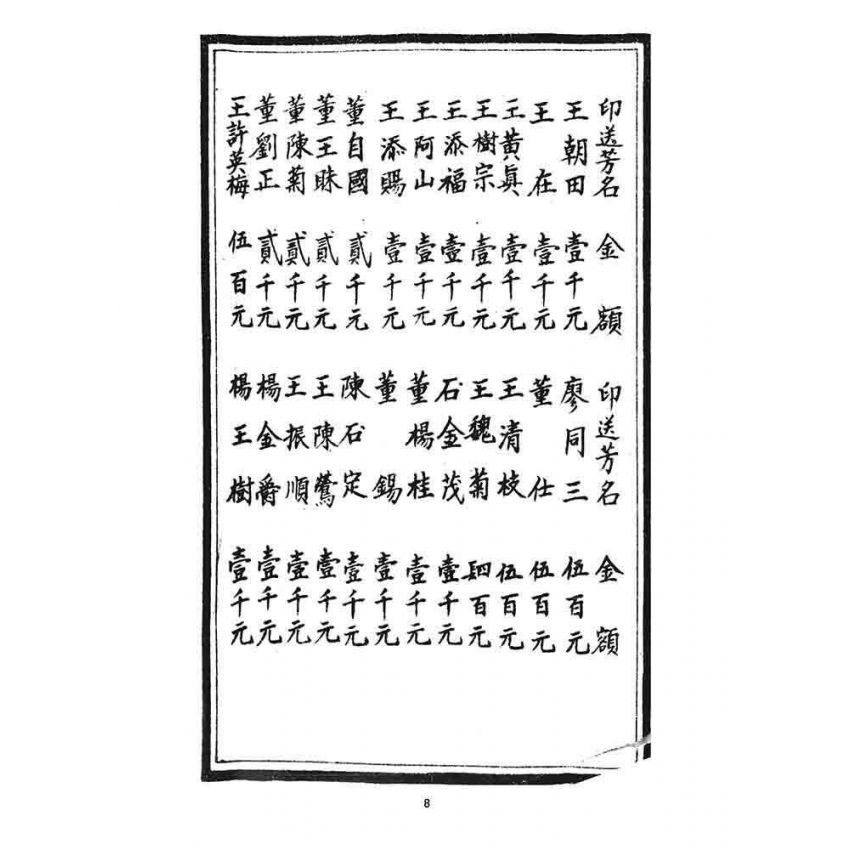 印送芳名 金額
王朝田 壹千元
王在 壹千元
王黃眞 壹千元
王樹宗 壹千元
王添福 壹千元
王阿山 壹千元
王添賜 壹千元
董自國 貳千元
董王 貳千元
董陳菊 貳千元
董劉正 貳千元
王許英梅 伍百元
印送芳名 金額
廖同三 伍百元
董仕 伍百元
王清枝 伍百元
王魏菊 百元
石金茂 壹千元
董楊桂 壹千元
董錫 壹千元
陳石定 壹千元
王陳鶯 壹千元
王振順 壹千元
楊金爵 壹千元
楊王樹 壹千元
8